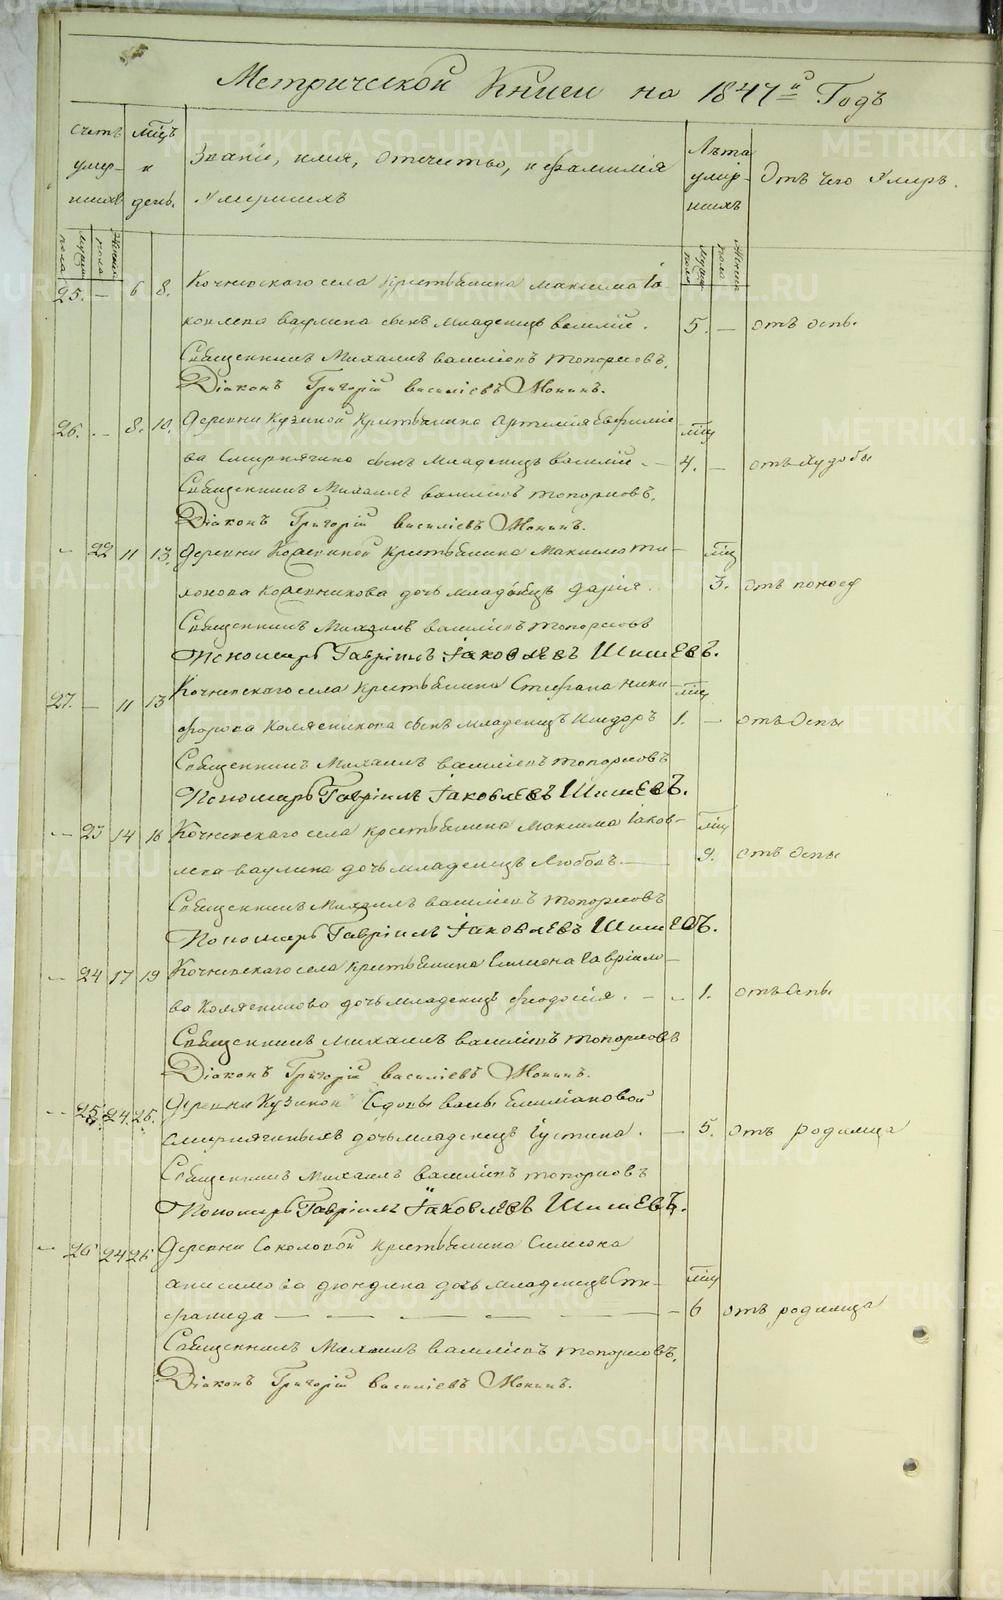 Метрической Книги на 1847й Годъ
Счетъ умер-шихъ
Мцъ и день.
Званіе, имя, отчество, и фамилія умершихъ
Лѣта умер-шихъ
Отъ чего умеръ.
мужска пола
женска пола
мужска пола
женска пола
25. — 6 8. Кочневскаго села крестьянина Максима Іа-
ковлева Ваулина сынъ младенецъ Василій. 5. — отъ оспы.
Священникъ Михаилъ Василіевъ Топорковъ.
Діаконъ Григорій Василіевъ Мокинъ.
26. — 8. 10. Деревни Кузиной крестьянина Артемія Евфиміе- мцъ
ва Смирнягина сынъ младенецъ Василій. — 4. — отъ худобы
Священникъ Михаилъ Василіевъ Топорковъ.
Діаконъ Григорій Василіевъ Мокинъ.
— 22 11 13. Деревни крестьянина Максима Ти- мцъ
хонова дочь младенецъ Дарія. 3. отъ поноса
Священникъ Михаилъ Василіевъ Топорковъ
Пономарь Гавріилъ Іаковлевъ Шишевъ.
27. — 11 13 Кочневскаго села крестьянина Стефана Ники- мцъ
форова Колясникова сынъ младенецъ Исидоръ 1. — отъ Оспы
Священникъ Михаилъ Василіевъ Топорковъ
Пономарь Гавріилъ Іаковлевъ Шишевъ.
— 23 14 16 Кочневскаго села крестьянина Максима Іаков- мцъ
лева Ваулина дочь младенецъ Любовь. — 9. отъ оспы
Священникъ Михаилъ Василіевъ Топорковъ
Пономарь Гавріилъ Іаковлевъ Шишевъ.
— 24 17 19 Кочневскаго села крестьянина Симеона Гавріило-
ва Колясникова дочь младенецъ Феодосія. — 1. отъ Оспы
Священникъ Михаилъ Василіевъ Топорковъ
Діаконъ Григорій Василіевъ Мокинъ.
— 25. 24. 25. Деревни Кузиной Вдовы Емиліановой
Смирнягиныхъ дочь младенецъ Іустина. — 5. отъ родимца
Священникъ Михаилъ Василіевъ Топорковъ
Пономарь Гавріилъ Іаковлевъ Шишевъ.
— 26 24 26 Деревни Соколовой крестьянина Симеона
Анисимова дочь младенецъ Сте- мцъ
фанида — — — — — 6 отъ родимца
Священникъ Михаилъ Василіевъ Топорковъ.
Діаконъ Григорій Василіевъ Мокинъ.
METRIKI.GASO-URAL.RU